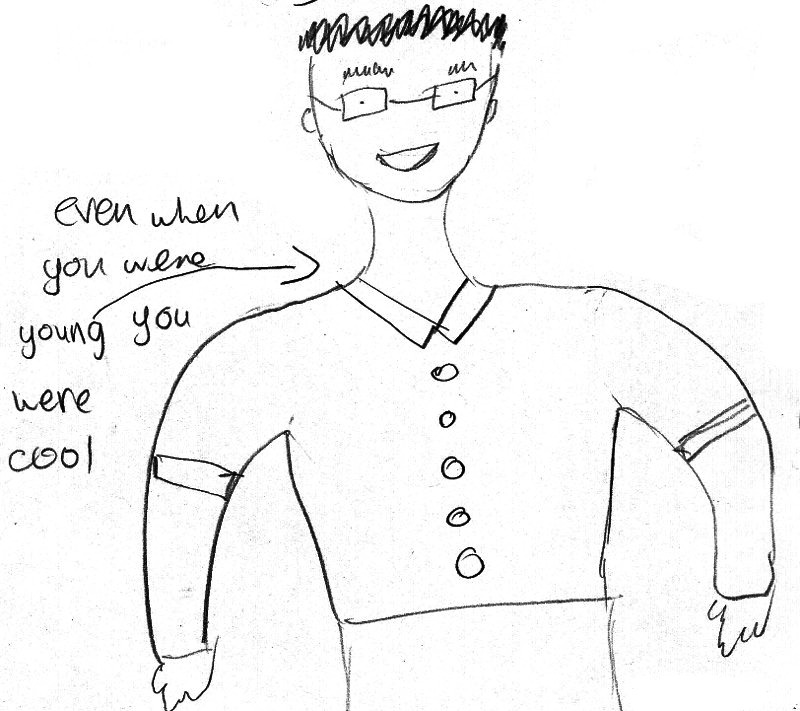 even when
you were
young you
were
cool